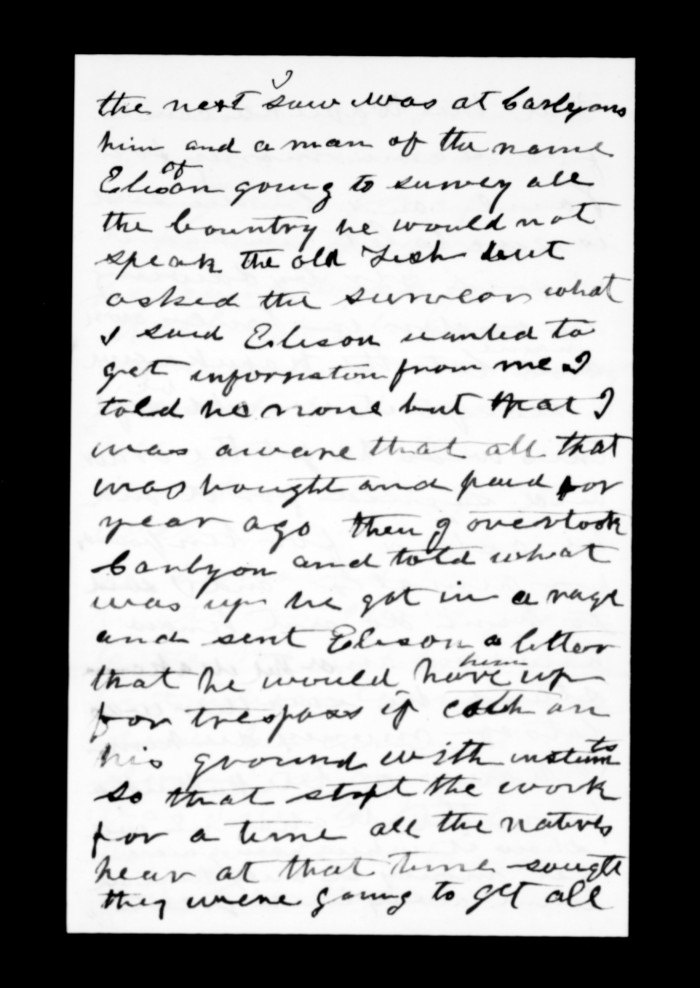 the next I saw was at Carlyons
him and a man of the name
of Elison going to survey all
the Country he would not
speak the old Tish but
asked the surveor what
I said Elison wanted to
get informston from me I
told he none but that I
was aware that all that
was bought and paid for
year ago then I overtook
Carlyon and told what
was up he got in a rage
and sent Elison a letter
that he would have him up
for trespass if catch an
his ground with instuments
so that stopt the work
for a time all the natives
hear at that time sougth
they were going to get all